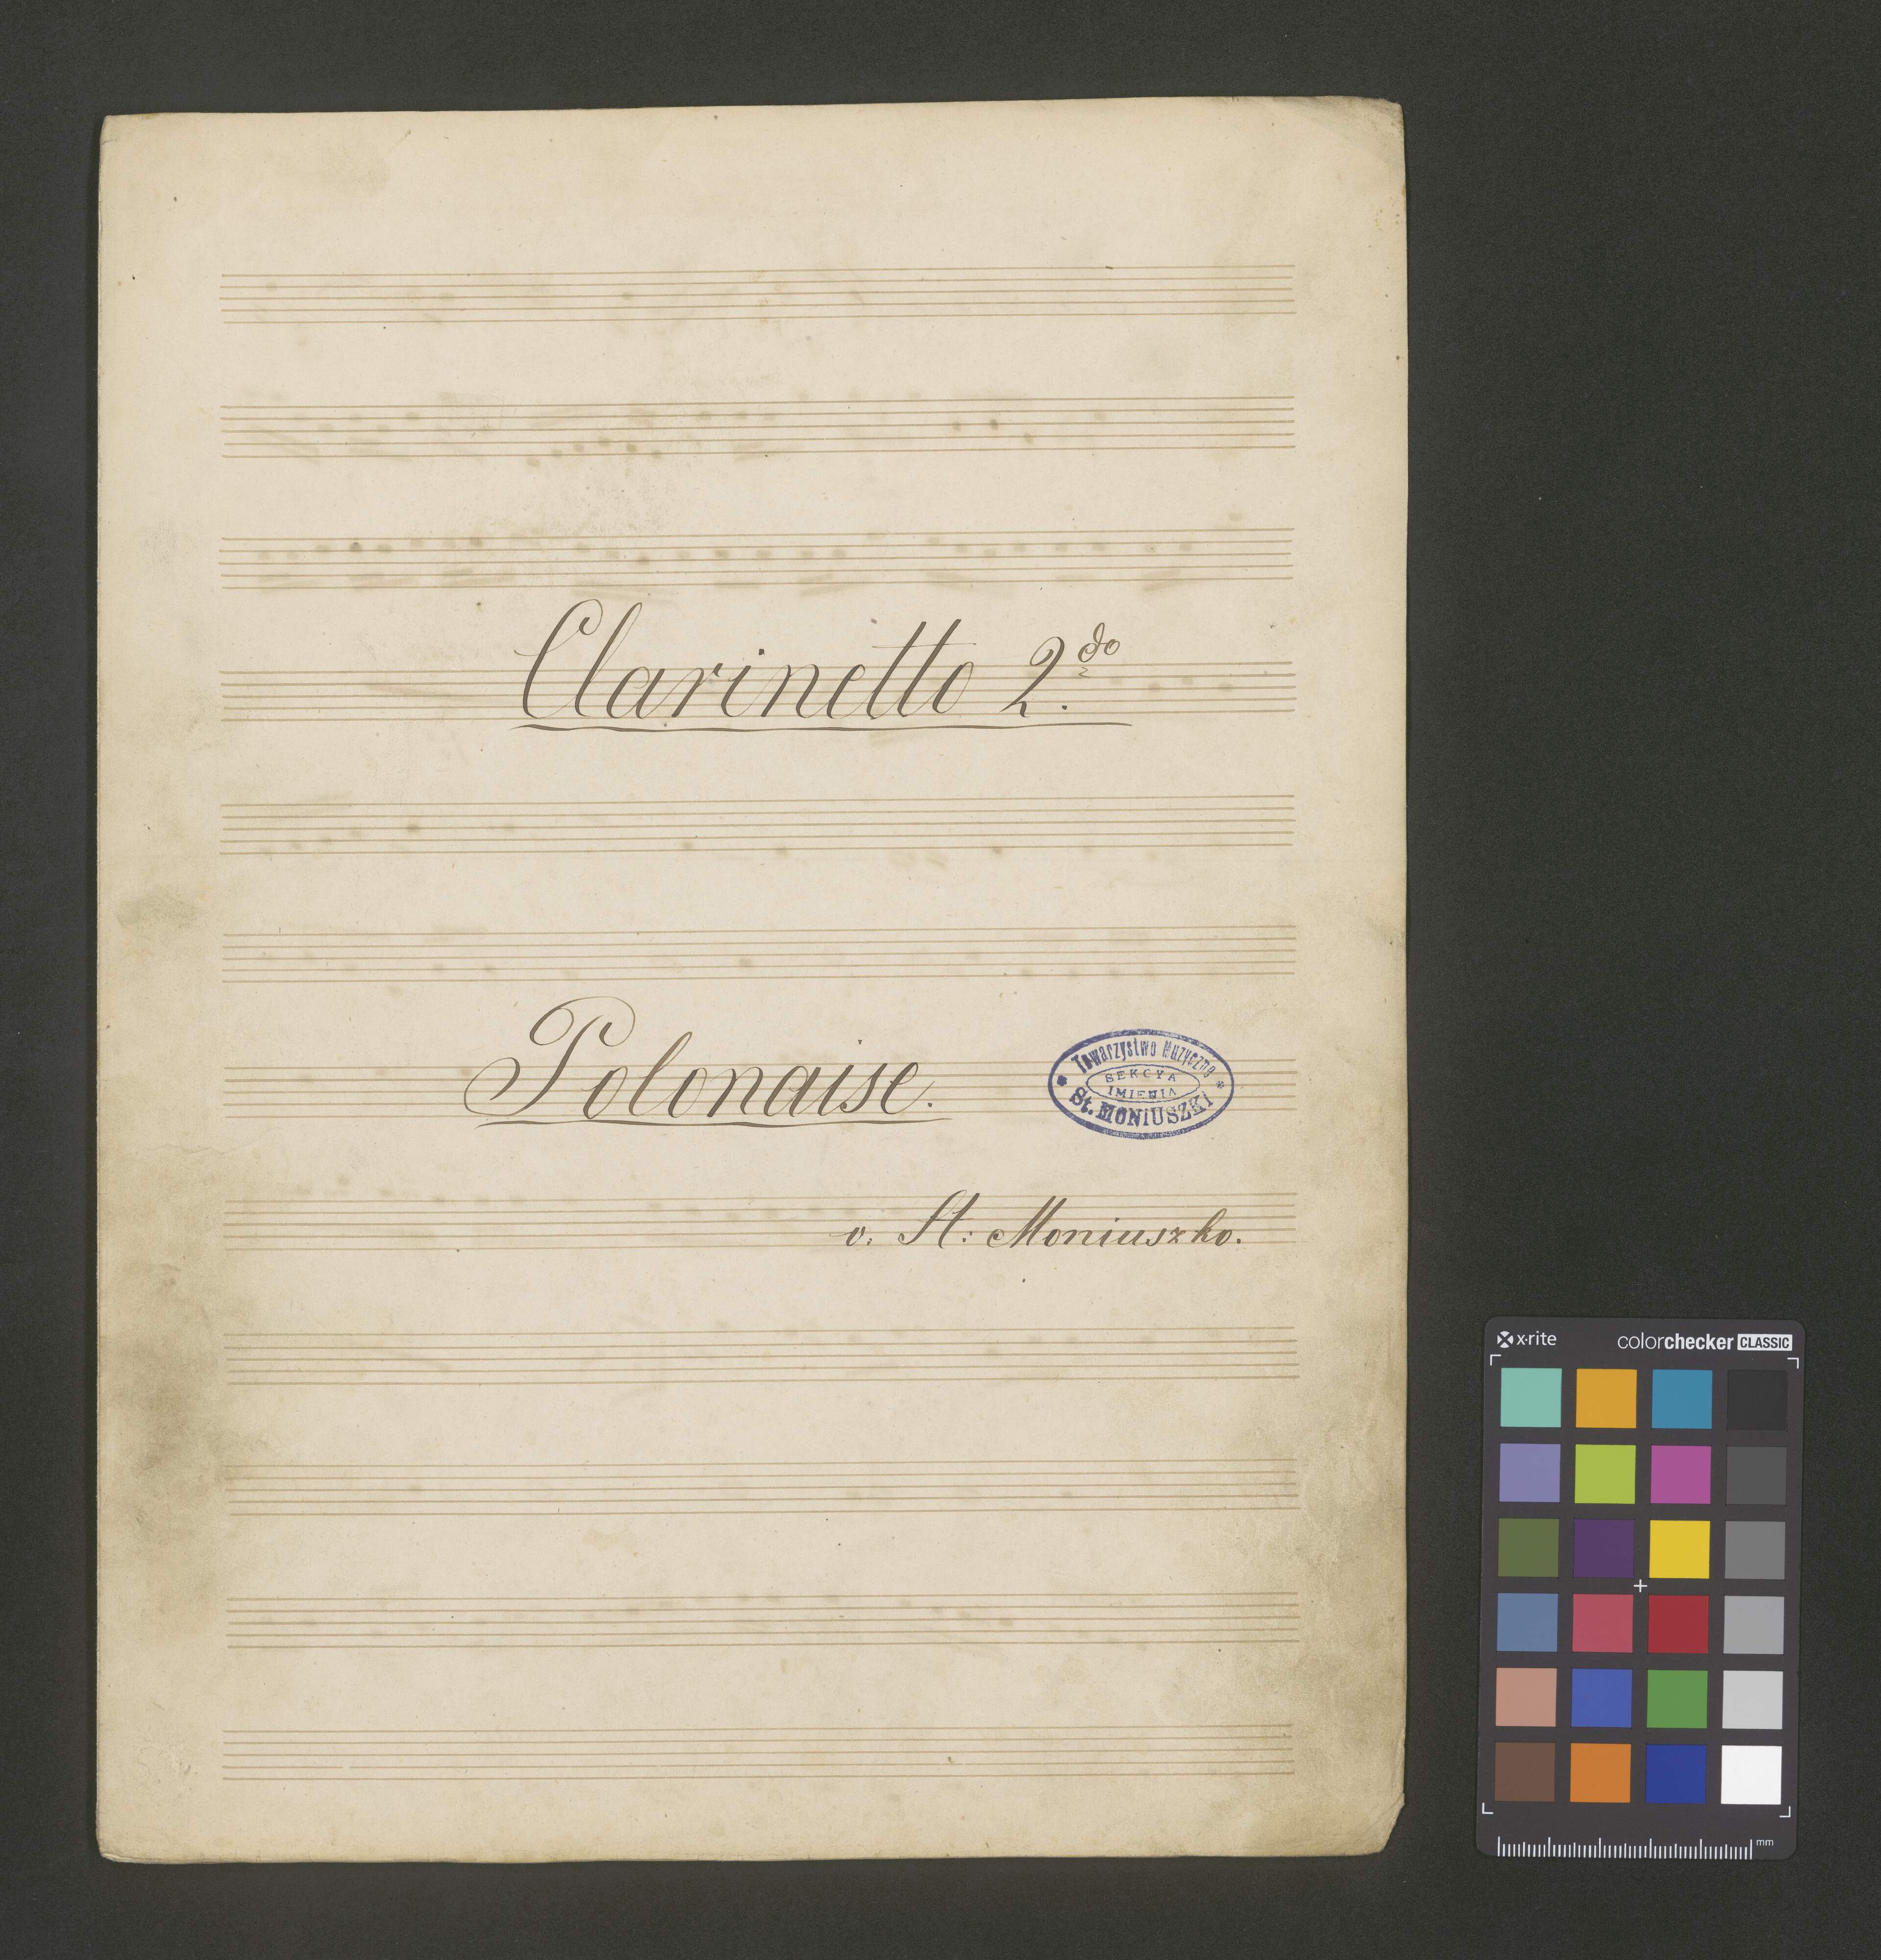 Clarinetto 2.do
Polonaise.
Towarzystwo Muzyczne
SEKCYA
IMIENIA
St. MONIUSZKI
v. St: Moniuszko.
x-rite colorchecker CLASSIC
mm